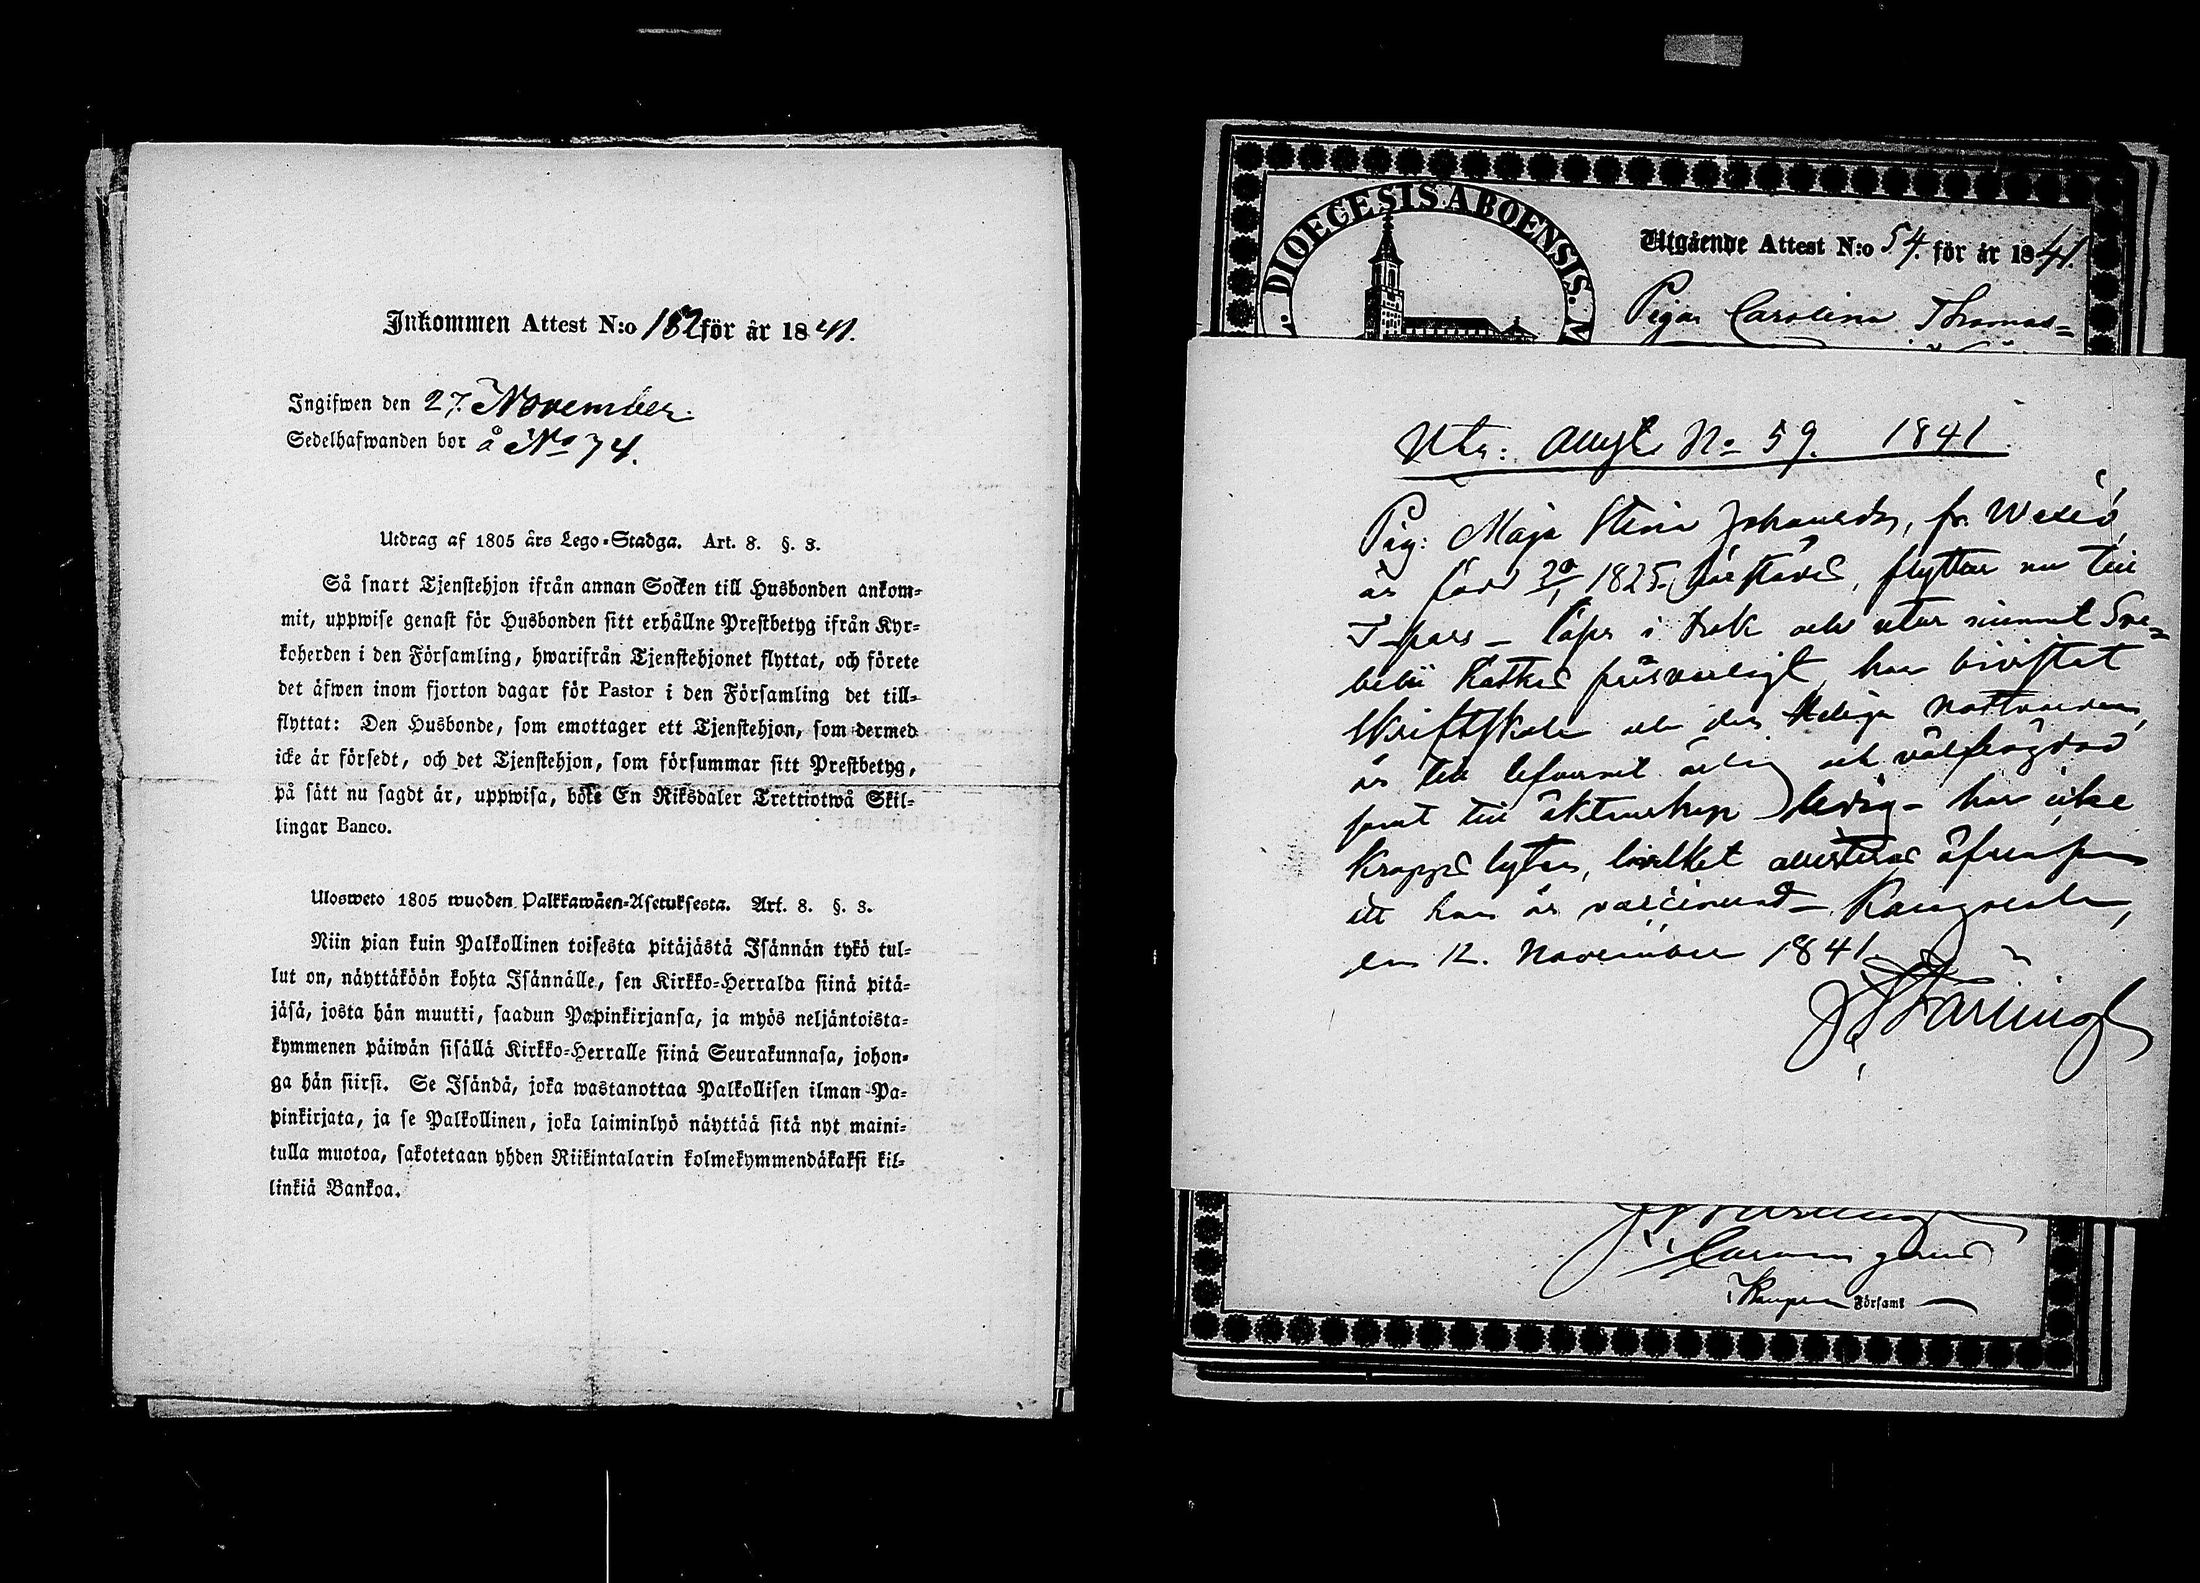 Inkommen Attest N:o 182 för år 1841.
Ingifwen den 27. November.
Sedelhafwanden bor å No 74.
Utdrag af 1805 års Lego-Stadga. Art. 8. §. 3.
Så snart Tjenstehjon ifrån annan Socken till Husbonden ankom-
mit, uppwise genast för Husbonden sitt erhållne Prestbetyg ifrån Kyr-
koherden i den Församling, hwarifrån Tjenstehjonet flyttat, och förete
det äfwen inom fjorton dagar för Pastor i den Församling det till-
flyttat: Den Husbonde, som emottager ett Tjenstehjon, som dermed
icke är försedt, och det Tjenstehjon, som försummar sitt Prestbetyg,
på sätt nu sagdt är, uppwisa, böte En Riksdaler Trettiotwå Skil-
lingar Banco.
Ulosweto 1805 wuoden Palkkawäen-Asetuksesta. Art. 8. §. 3.
Niin pian kuin Palkollinen toisesta pitäjästä Isännän tykö tul-
lut on, näyttäköön kohta Isännälle, sen Kirkko-Herralda siinä pitä-
jäsä, josta hän muutti, saadun Papinkirjansa, ja myös neljäntoista-
kymmenen päiwän sisällä Kirkko-Herralle siinä Seurakunnasa, johon-
ga hän siirsi. Se Isändä, joka wastanottaa Palkollisen ilman Pa-
pinkirjata, ja se Palkollinen, joka laiminlyö näyttää sitä nyt maini-
tulla muotoa, sakotetaan yhden Riikintalarin kolmekymmendäkaksi kil-
linkiä Bankoa.
DIOECESIS ABOENSIS.
Utgående Attest N:o 54. för år 1841.
Pigan Carolina Thomas=
No 59. 1841.
Pig: Maja Stina Johansdr, fr.
är född 1825 härstädes, flyttar nu till
i bok och utur minnet
har bivistat
Skriftskola och den Heliga Nattvarden,
är till lefvernet ärlig och välfrägdad
samt till äktenskap ledig - har icke
Kropps lyten, hvilket attesteras äfvensom
att hon är vaccinerad - Kangasala,
den 12. November 1841.
Församl